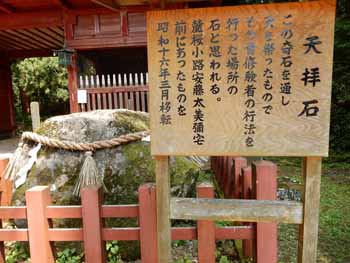 天拝石
この奇石を通し
天を拝したもので
その昔修験者の行法を
行った場所の
石と思われる。
麓桜小路安藤太美彌宅
前にあったものを
昭和十六年三月移転